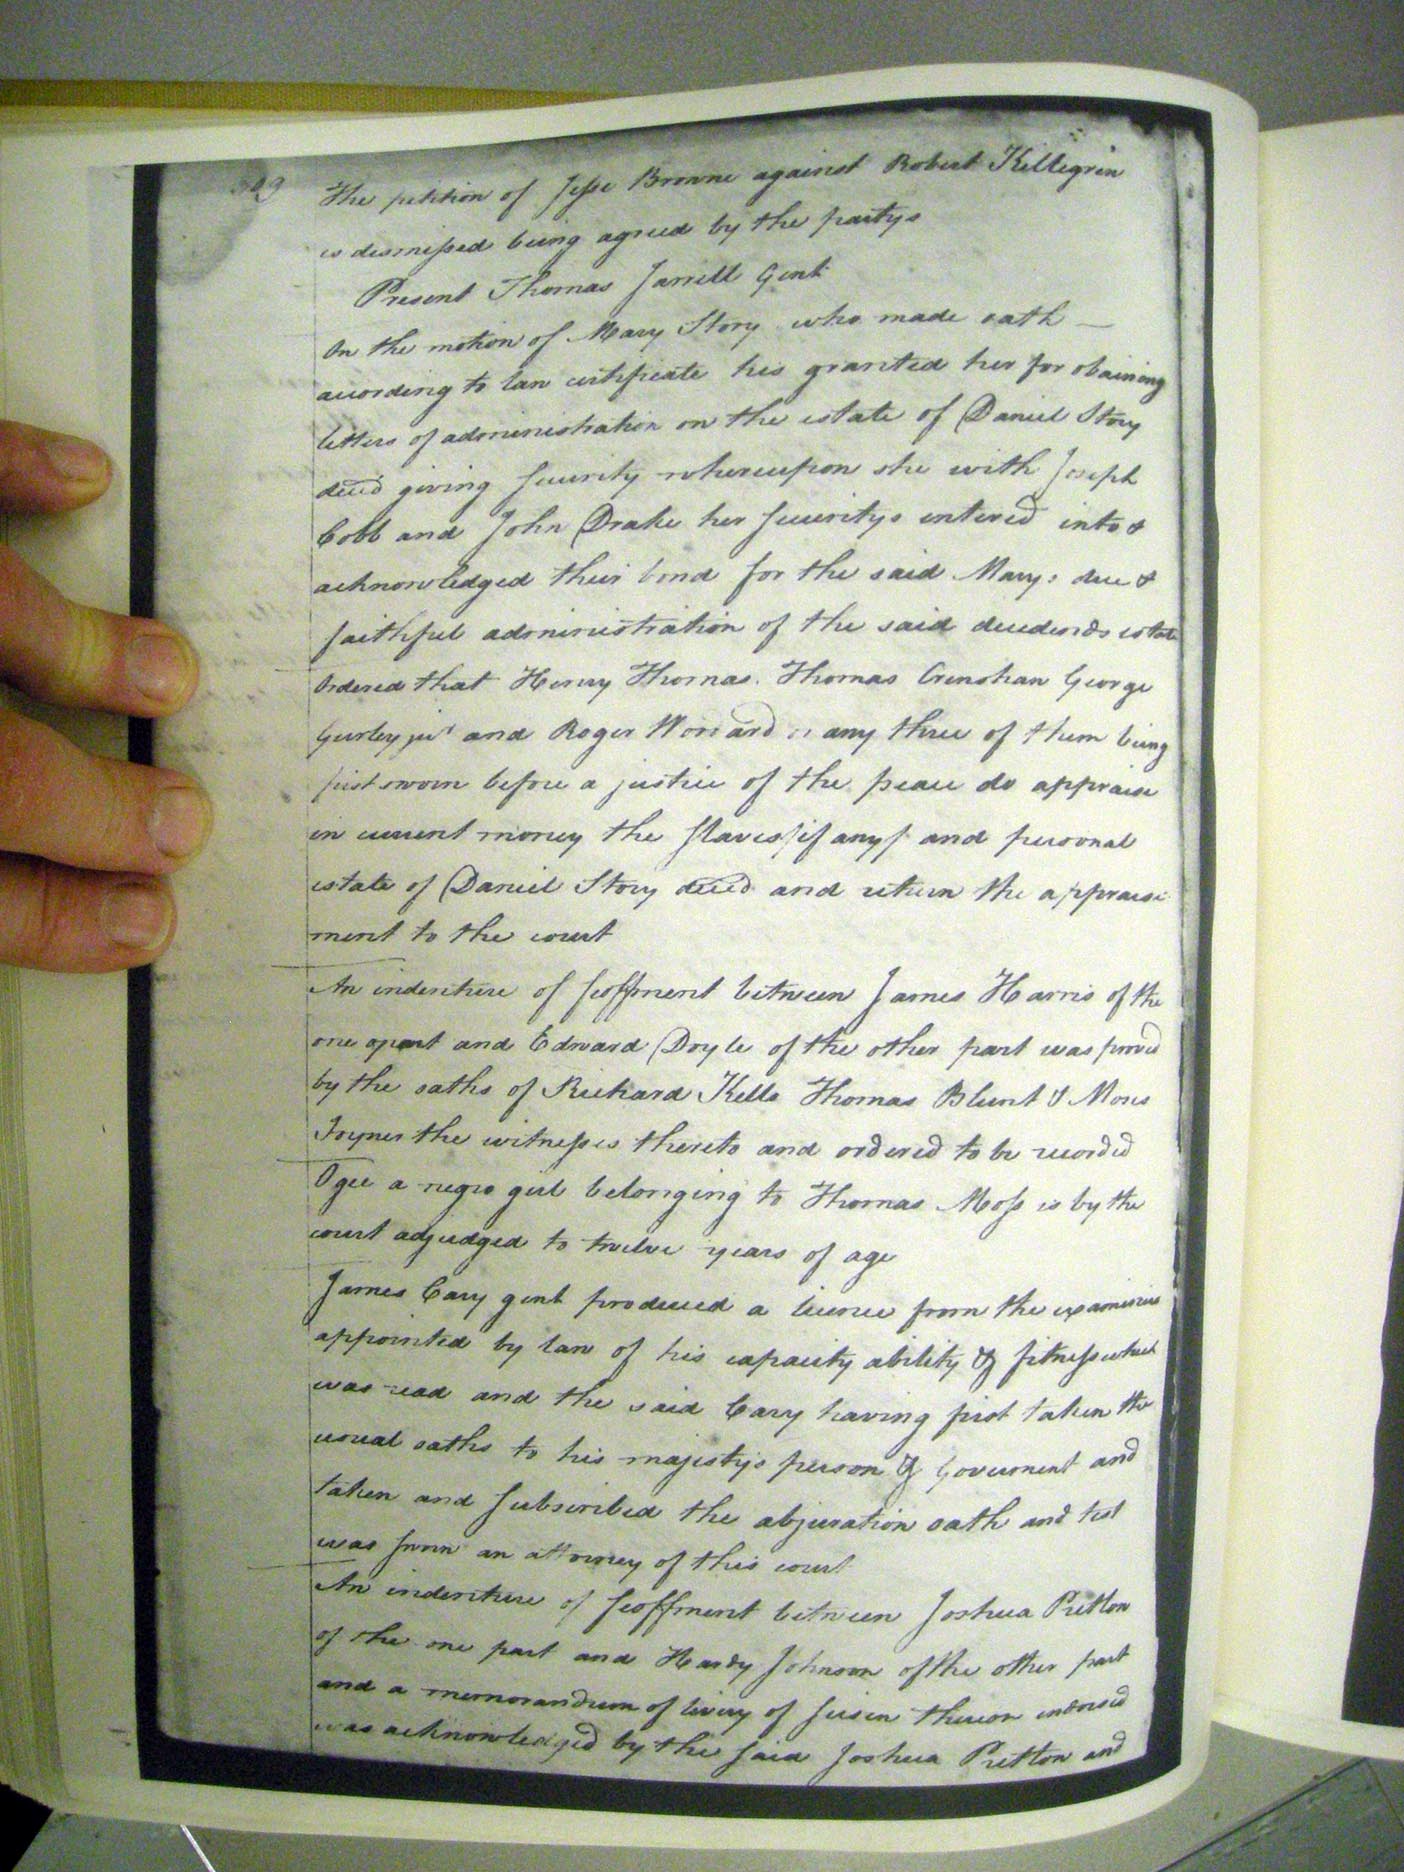 The petition of Jesse Browne against Robert Killegrin
is dismissed being agreed by the partys
Present Thomas Jarrell Gent
On the motion of Mary Story who made oath —
according to law certificate his granted her for obaining
letters of administration on the estate of Daniel Story
decd giving security whereupon she with Joseph
Cobb and John Drake her securitys entered into &
acknowledged their bond for the said Marys due &
faithful administration of the said decedends estate
Ordered that Henry Thomas. Thomas Crenshaw George
Gurley jur and Roger Woward or any three of them being
first sworn before a justice of the peace do appraise
in current money the slaves /if any/ and personal
estate of Daniel Story decd and return the appraise
ment to the court
An indenture of feoffment between James Harris of the
one apart and Edward Doyle of the other part was proved
by the oaths of Richard Kello Thomas Blunt & Moses
Joyner the witnesses thereto and ordered to be recorded
Ogee a negro girl belonging to Thomas Moss is by the
court adjudged to twelve years of age
James Cary gent produced a licence from the examiners
appointed by law of his capacity ability & fitness which
was read and the said Cary having first taken the
usual oaths to his majestys person & Government and
taken and subscribed the abjuration oath and test
was sworn an attorney of this court
An indenture of feoffment between Joshua Pretlow
of the one part and Hardy Johnson of the other part
and a memorandum of livery of seisen thereon endorsed
was acknowledged by the said Joshua Pretlow and